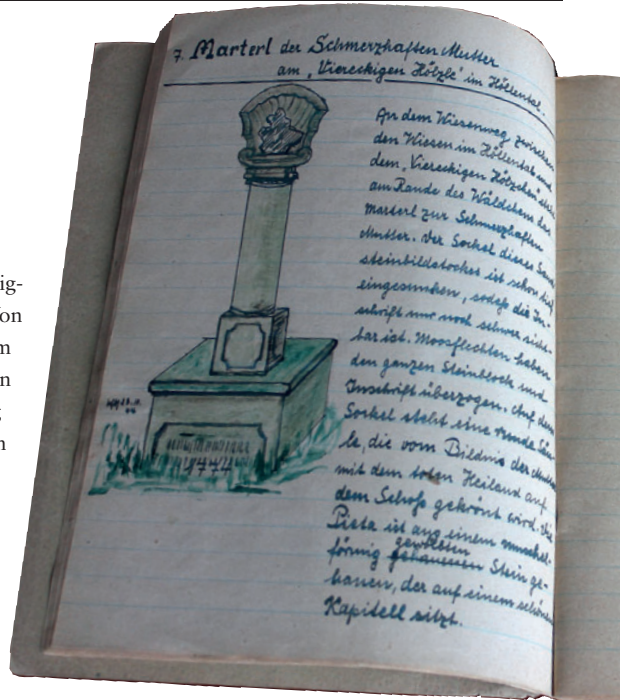 ig-
on
m
n
g
n
7. Marterl der Schmerzhaften Mutter
am "Viereckigen Hölzle" im Höllental.
An dem Wiesenweg zwischen
den Wiesen im Höllental und
dem "Viereckigen Hölzchen" steht
am Rande des Wäldchens das
Marterl zur Schmerzhaften
Mutter. Der Sockel dieses Sand
steinbildstockes ist schon tief
eingesunken, sodaß die In-
schrift nur noch schwer sicht-
bar ist. Moosflechten haben
den ganzen Steinblock und
Inschrift überzogen. Auf dem
Sockel steht eine runde Säu-
le, die vom Bildnis der Mutter
mit dem toten Heiland auf
dem Schoß gekrönt wird. Die
Pieta ist aus einem muschel-
gewölbten
förmig gehauenen Stein ge-
hauen, der auf einem schönen
Kapitell sitzt.